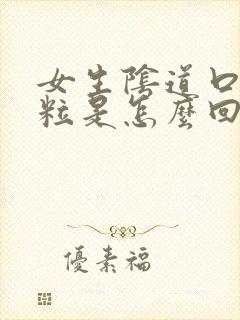 女生陰道口
粒是怎麼回
優素福